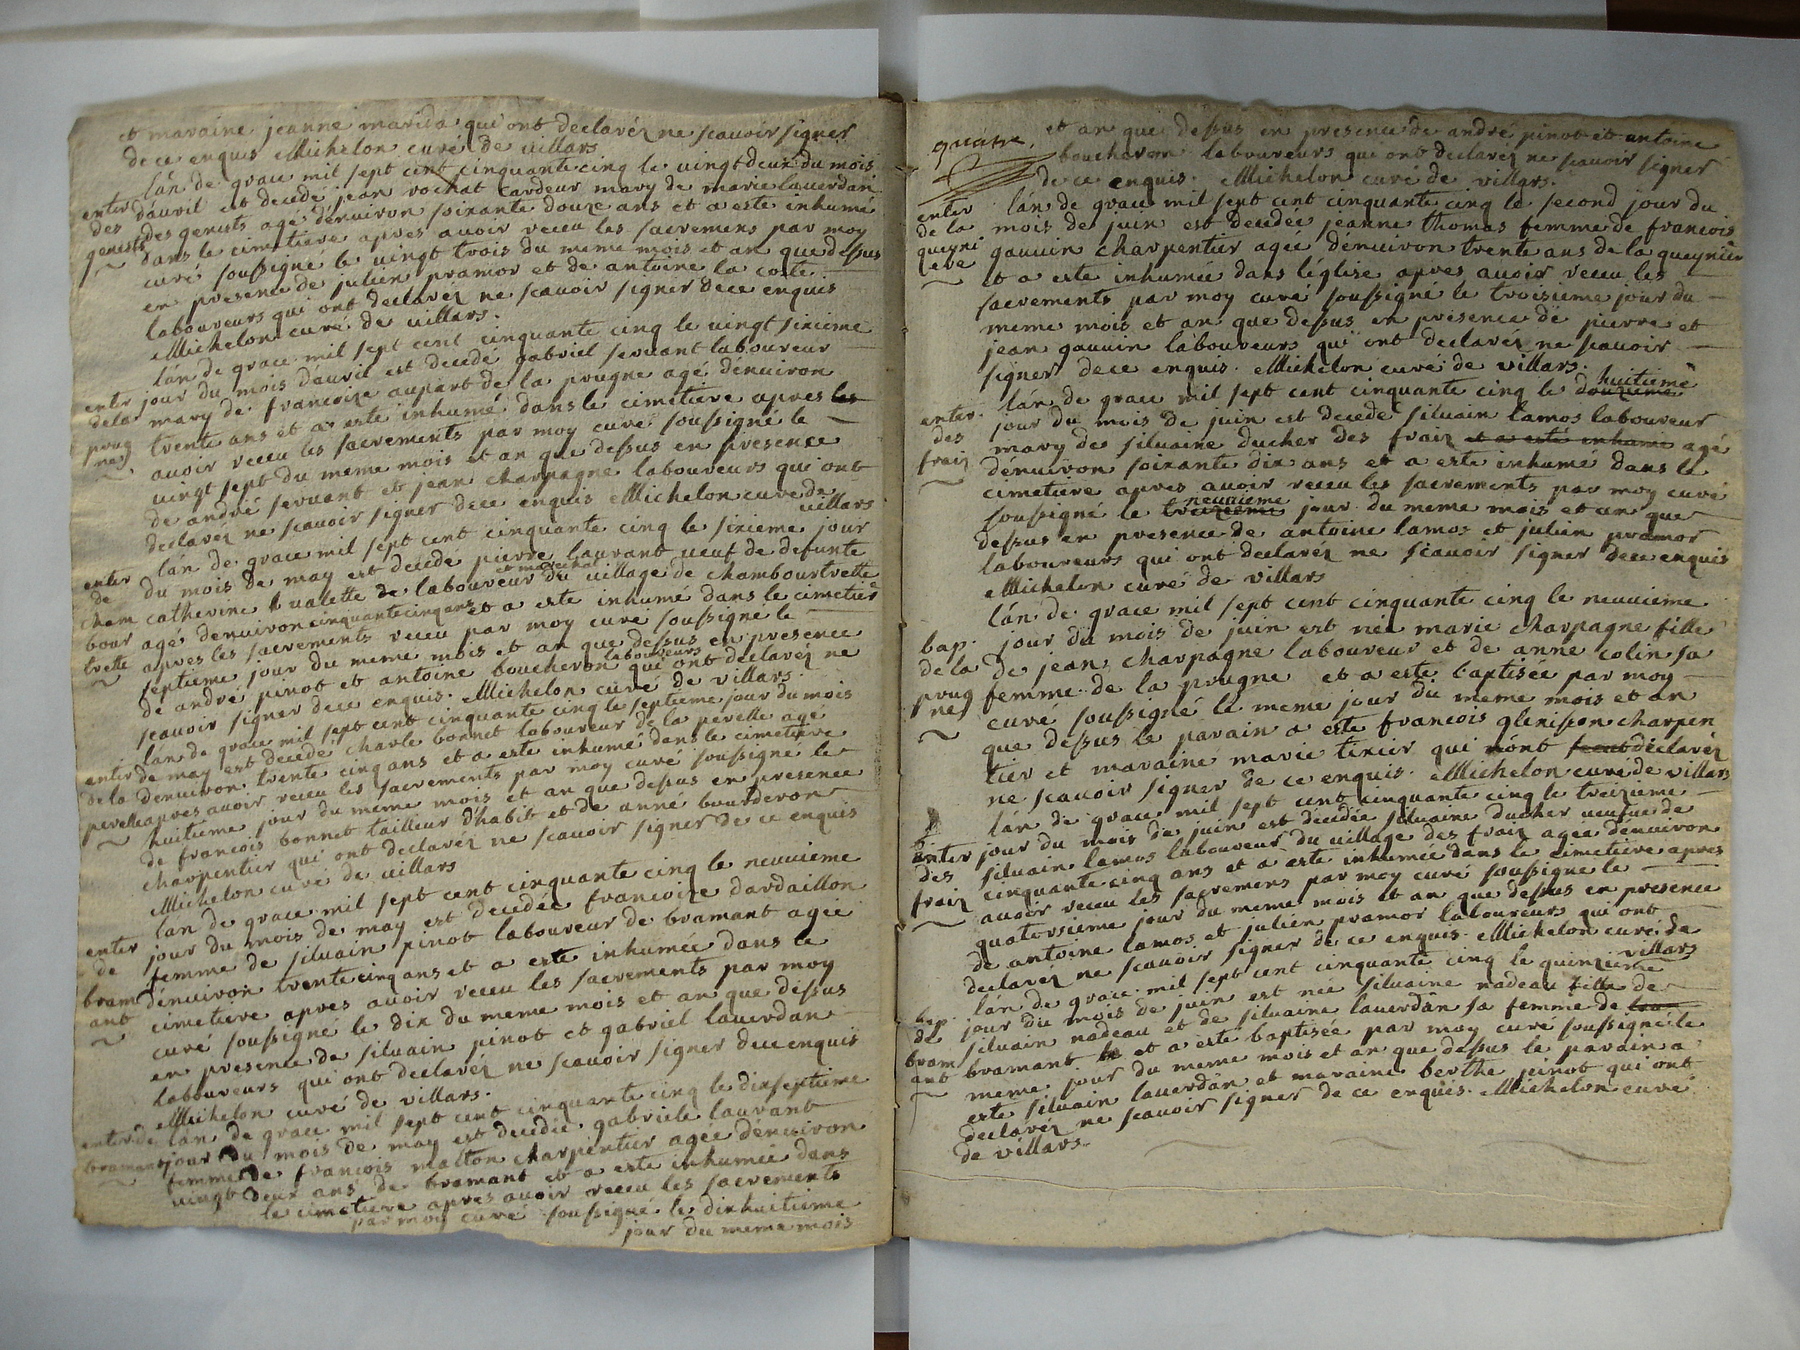 et maraine jeanne marida qui ont declaréz ne scauoir signer
de ce enquis Michelon curé de villars
lán de grace mil sept cent cinquante cinq le vingt deux du mois
enter d'auril est decedé jean rochat cardeur mary de marie lauerdan
des des genests agé dénuiron soixante douze ans et a este inhumé
genests dans le cimetiere apres auoir receu les sacremens par moy
curé soussigné le vingt trois du meme mois et an que dessus
en presence de julien pramor et de antoine la coste
laboureurs qui ont declaréz ne scauoir signer de ce enquis
Michelon curé de villars.
lán de grace mil sept cent cinquante cinq le vingt sixieme
jour du mois dáuril est decedé gabriel seruant laboureur
entr mary de francoize aupart de la prugne agé dénuiron
de la trente ans et a este inhumé dans le cimetiere apres les
prug auoir receu les sacrements par moy curé soussigné le
ne vingt sept du meme mois et an que dessus en presence
de andré seruant et jean charpagne laboureurs qui ont
declarez ne scauoir signer de ce enquis Michelon curé de
villars
lán de grace mil sept cent cinquante cinq le sixieme jour
enter du mois de may est decedé pierre laurant ueuf de defunte
et marechal
de catherine ualette de laboureur du uillage de chambourtrette
cham agé dénuiron cinquante cinq ans et a este inhumé dans le cimetier
bour apres les sacrements receu par moy curé soussigné le
trette septieme jour du meme mois et an que dessus en presence
laboureurs
de andre pinot et antoine boucheron qui ont declaréz ne
scauoir signer de ce enquis. Michelon curé de villars.
lán de grace mil sept cent cinquante cinq le septieme jour du mois
enter de may est decedé charle bonnet laboureur de la perelle agé
de la dénuiron trente cinq ans et a este inhumé dans le cimetiere
perelle apres auoir receu les sacrements par moy curé soussigné le
huitieme jour du meme mois et an que dessus en presence
de francois bonnet tailleur d'habit et de anné bourderon
charpentier qui ont declaréz ne scauoir signer de ce enquis
Michelon curé de villars
lan de grace mil sept cent cinquante cinq le neuuieme
enter jour du mois de may est decedée francoize dardaillon
de femme de siluain pinot laboureur de bramant agée
bram dénuiron trente cinq ans et a este inhumée dans le
ant cimetiere apres auoir receu les sacrements par moy
curé soussigné le dix du meme mois et an que dessus
en presence de siluain pinot et gabriel lauerdan
laboureurs qui ont declaréz ne scauoir signer de ce enquis
Michelon curé de villars.
enter de lán de grace mil sept cent cinquante cinq le dixseptieme
bramant jour du mois de may est decedée gabriele laurant
femme de francois malton charpentier agée dénuiron
uingt deux ans de bramant et a este inhumée dans
le cimetiere apres auoir receu les sacrements
par moy curé soussigné le dixhuitieme
jour du meme mois
quatre. et an que dessus en presence de andré pinot et antoine
boucheron laboureurs qui ont declaréz ne scauoir signer
de ce enquis. Michelon curé de villars.
enter lán de grace mil sept cent cinquante cinq le second jour du
de la mois de juin est decedée jeanne thomas femme de francois
gueyni gauuin charpentier agée dénuiron trente ans de la gueynier
ere et a este inhumée dans léglise apres auoir receu les
sacrements par moy curé soussigné le troisieme jour du
meme mois et an que dessus en presence de pierre et
jean gauuin laboureurs qui ont declaréz ne scauoir
signer de ce enquis. Michelon curé de villars.
huitieme
lán de grace mil sept cent cinquante cinq le douzieme
enter. jour du mois de juin est decedé siluain lamos laboureur
des mary de siluaine ducher des fraiz et a esté inhumé agé
fraiz dénuiron soixante dix ans et a este inhumé dans le
cimetiere apres auoir receu les sacrements par moy curé
neuuieme
soussigné le treizieme jour du meme mois et an que
dessus en presence de antoine lamos et julien pramor
laboureurs qui ont declarez ne scauoir signer de ce enquis
Michelon curé de villars
lán de grace mil sept cent cinquante cinq le neuuieme
bap. jour du mois de juin est née marie charpagne fille
de la de jean charpagne laboureur et de anne colin sa
prug femme de la prugne et a este baptisée par moy
ne curé soussigné le meme jour du meme mois et an
que dessus le parain a este francois glenisson charpen
tier et maraine marie tixier qui ont declaréz
ne scauoir signer de ce enquis. Michelon curé de villars
lán de grace mil sept cent cinquante cinq le treizieme
enter jour du mois de juin est decedée siluaine ducher ueufue de
des siluain lamos laboureur du uillage des fraiz agée dénuiron
fraiz cinquante cinq ans et a este inhumée dans le cimetiere apres
auoir receu les sacremens par moy curé soussigné le
quatorsieme jour du meme mois et an que dessus en presence
de antoine lamos et julien pramor laboureurs qui ont
declaréz ne scauoir signer de ce enquis. Michelon curé de
villars
lán de grace mil sept cent cinquante cinq le quinzieme
bap. jour du mois de juin est née siluaine nadeau fille de
de siluain nadeau et de siluaine lauerdan sa femme de
bram bramant et a esté baptisée par moy curé soussigné le
ant meme jour du meme mois et an que dessus le parain a
este siluain lauerdan et maraine berthe pinot qui ont
declaréz ne scauoir signer de ce enquis. Michelon curé
de villars.